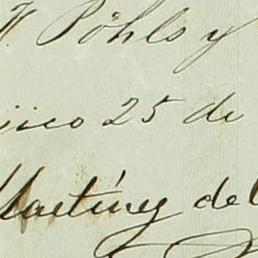 Pöhls y
jico 25 de
Martínez del